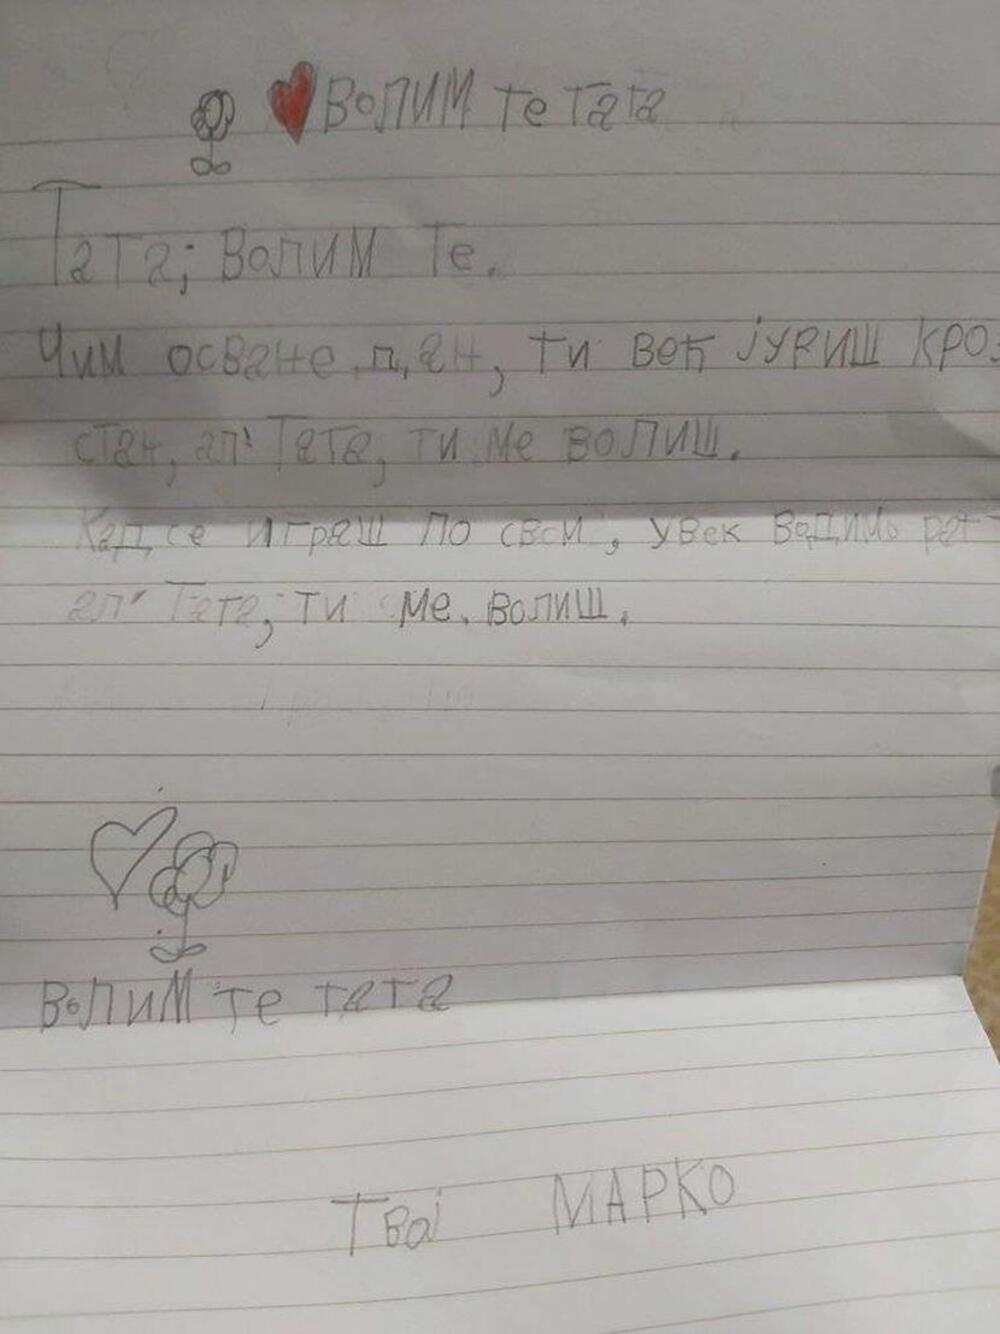 ВОЛИМ ТЕ ТАТА
Тата; ВОЛИМ Те.
Чим осване дан, ти већ јуриш кроз
стан, ал' Тата, ти ме волиш.
Кад се играш по свом, увек водимо рат
ал' Тата, ти ме. волиш.
ВОЛИМ ТЕ ТАТА
Твој МАРКО